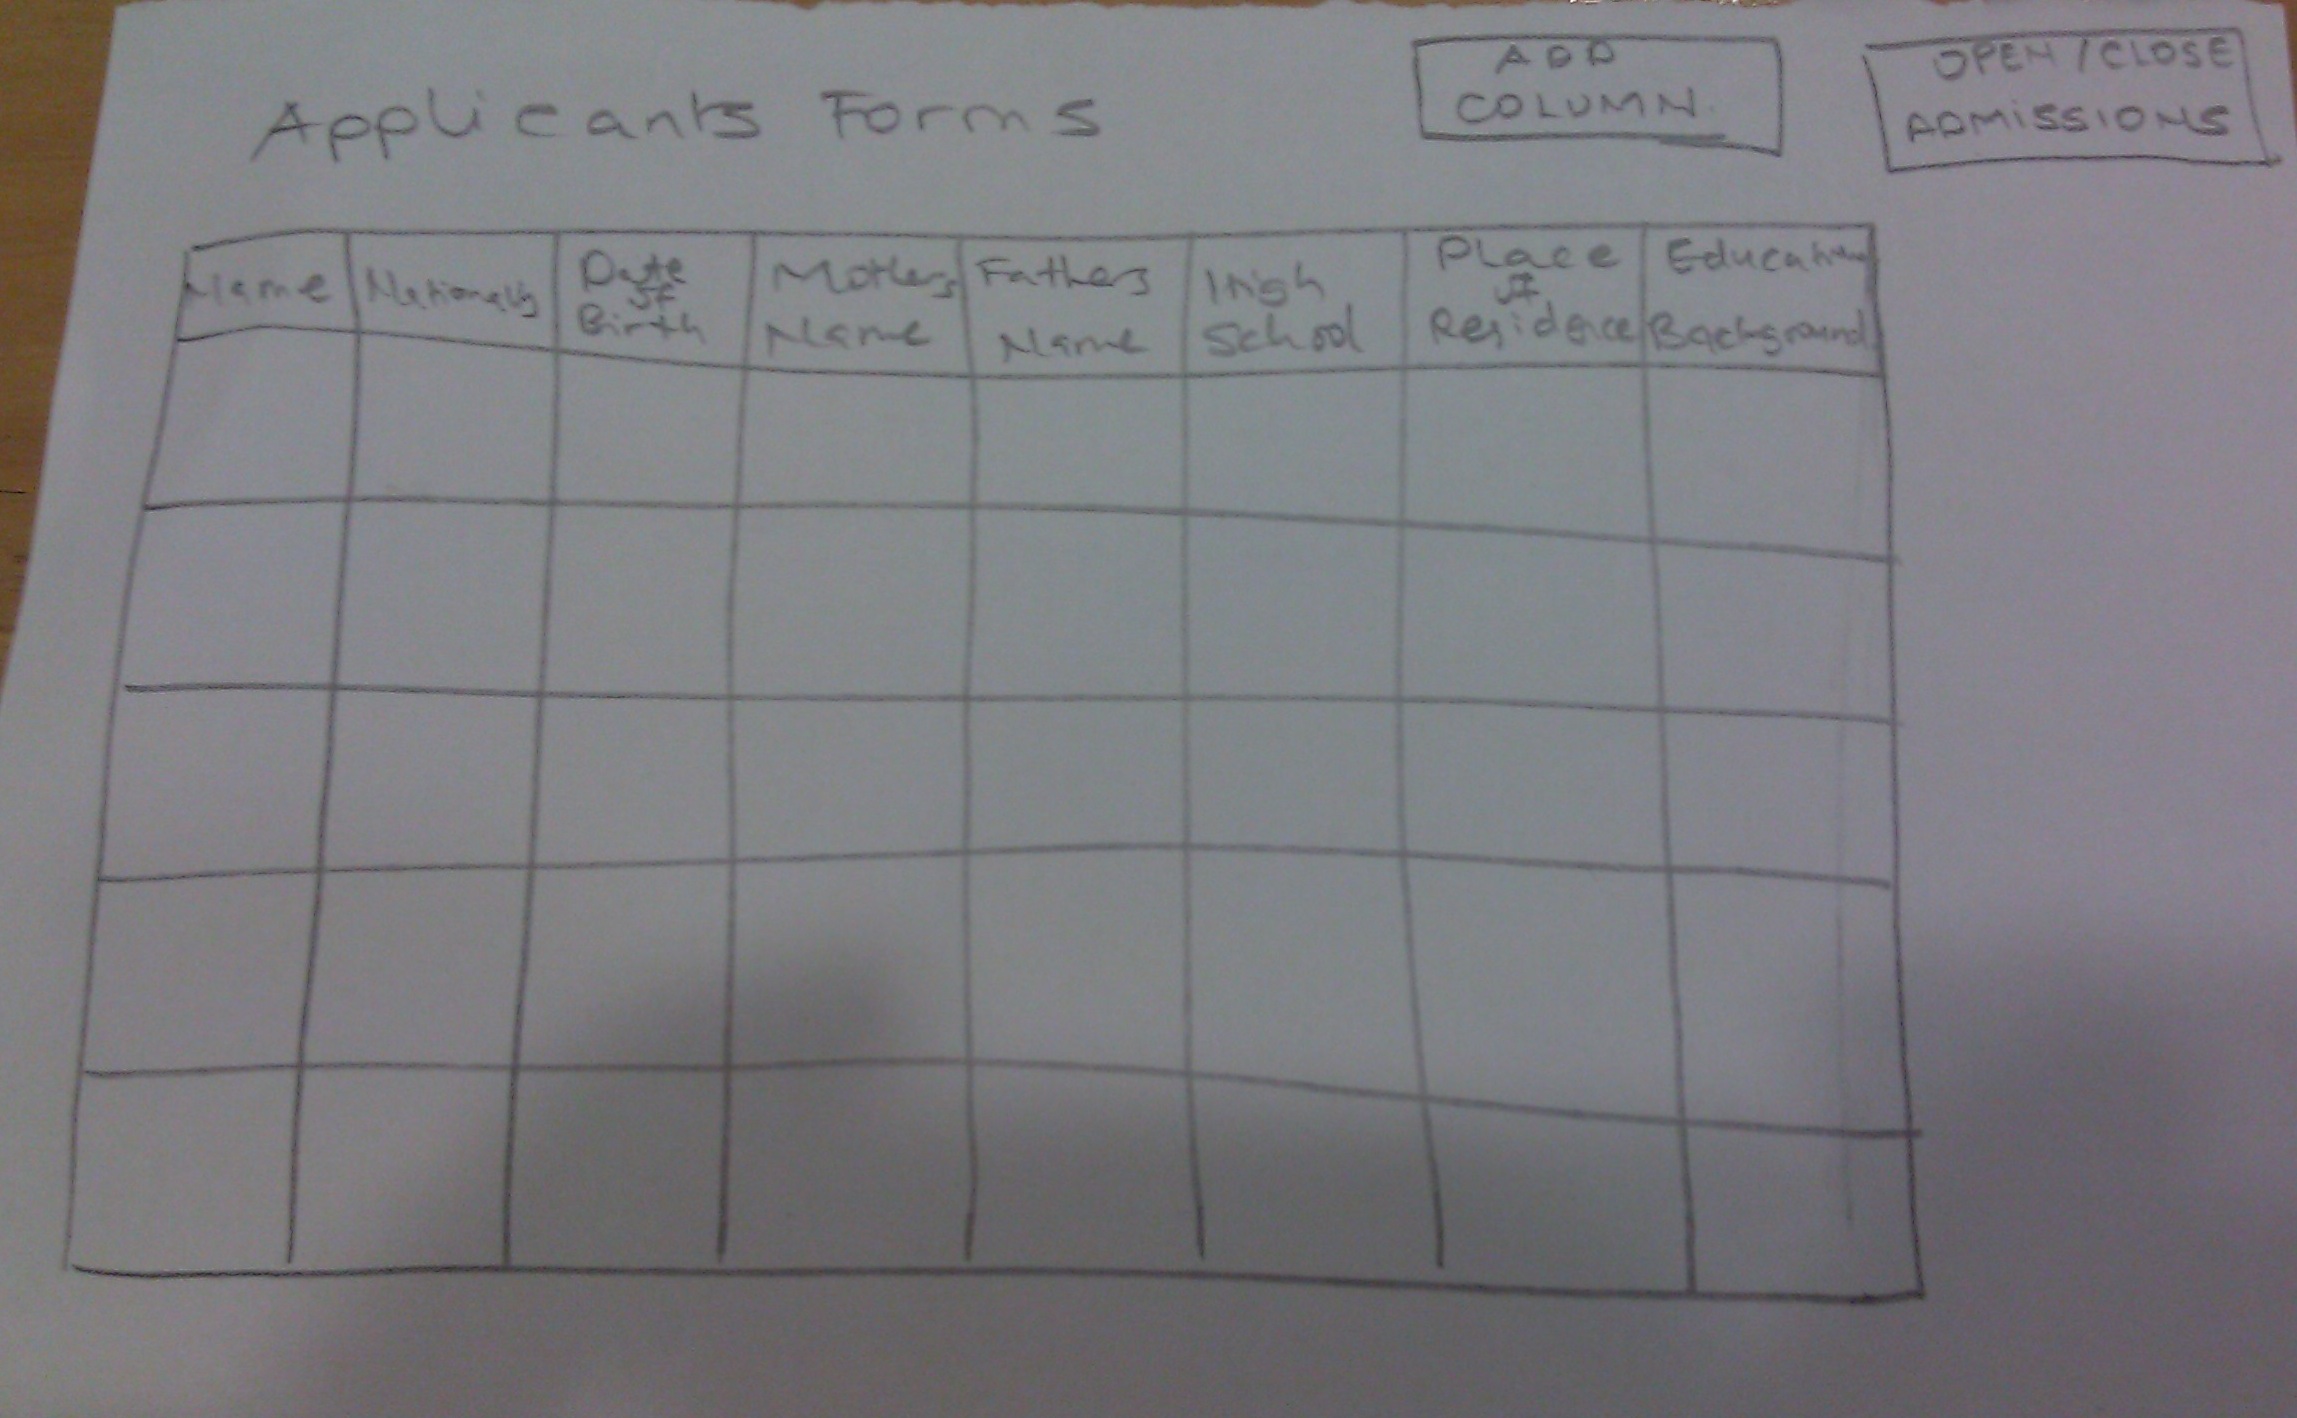 Applicants Forms
ADD
COLUMN.
OPEN / CLOSE
ADMISSIONS
Name
Nationality
Date
of
Birth
Mothers
Name
Fathers
Name
High
School
Place
of
Residence
Education
Background